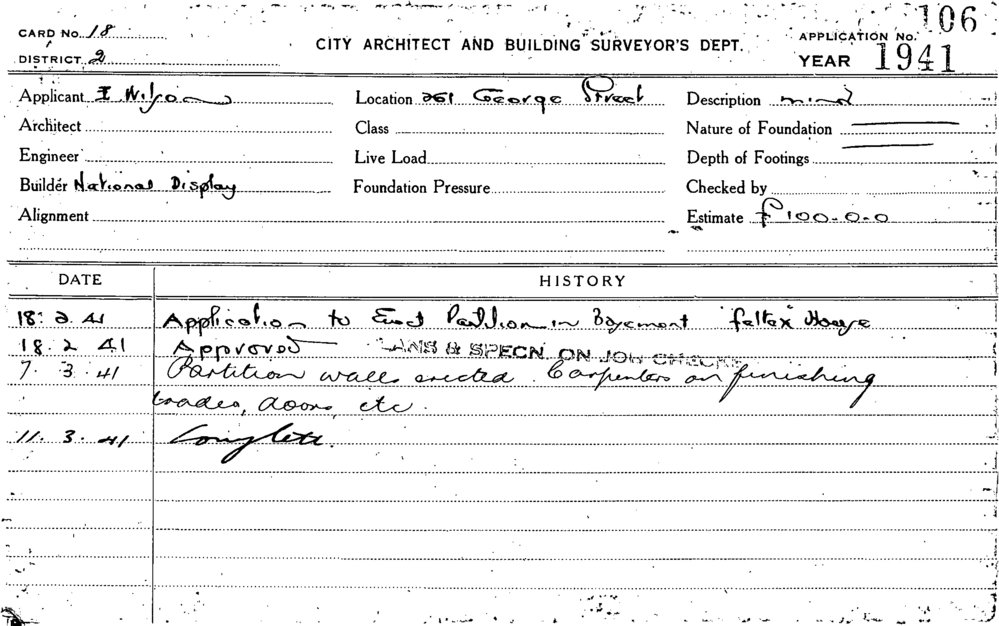 CARD No. 18 CITY ARCHITECT AND BUILDING SURVEYOR'S DEPT. APPLICATION No. 106
DISTRICT 2 YEAR 1941
Applicant I Wilson Location 261 George Street Description minor
Architect Class Nature of Foundation
Engineer Live Load Depth of Footings
Builder National Display Foundation Pressure Checked by
Alignment Estimate £100-0-0
DATE HISTORY
18. 2. 41 Application to Erect Partition in Basement Feltex House
18. 2 41 Approved LANS & SPECN. ON JOB CHECK
7. 3. 41 Partition walls erected. Carpenters on finishing
trades, doors, etc.
11. 3. 41 Complete.